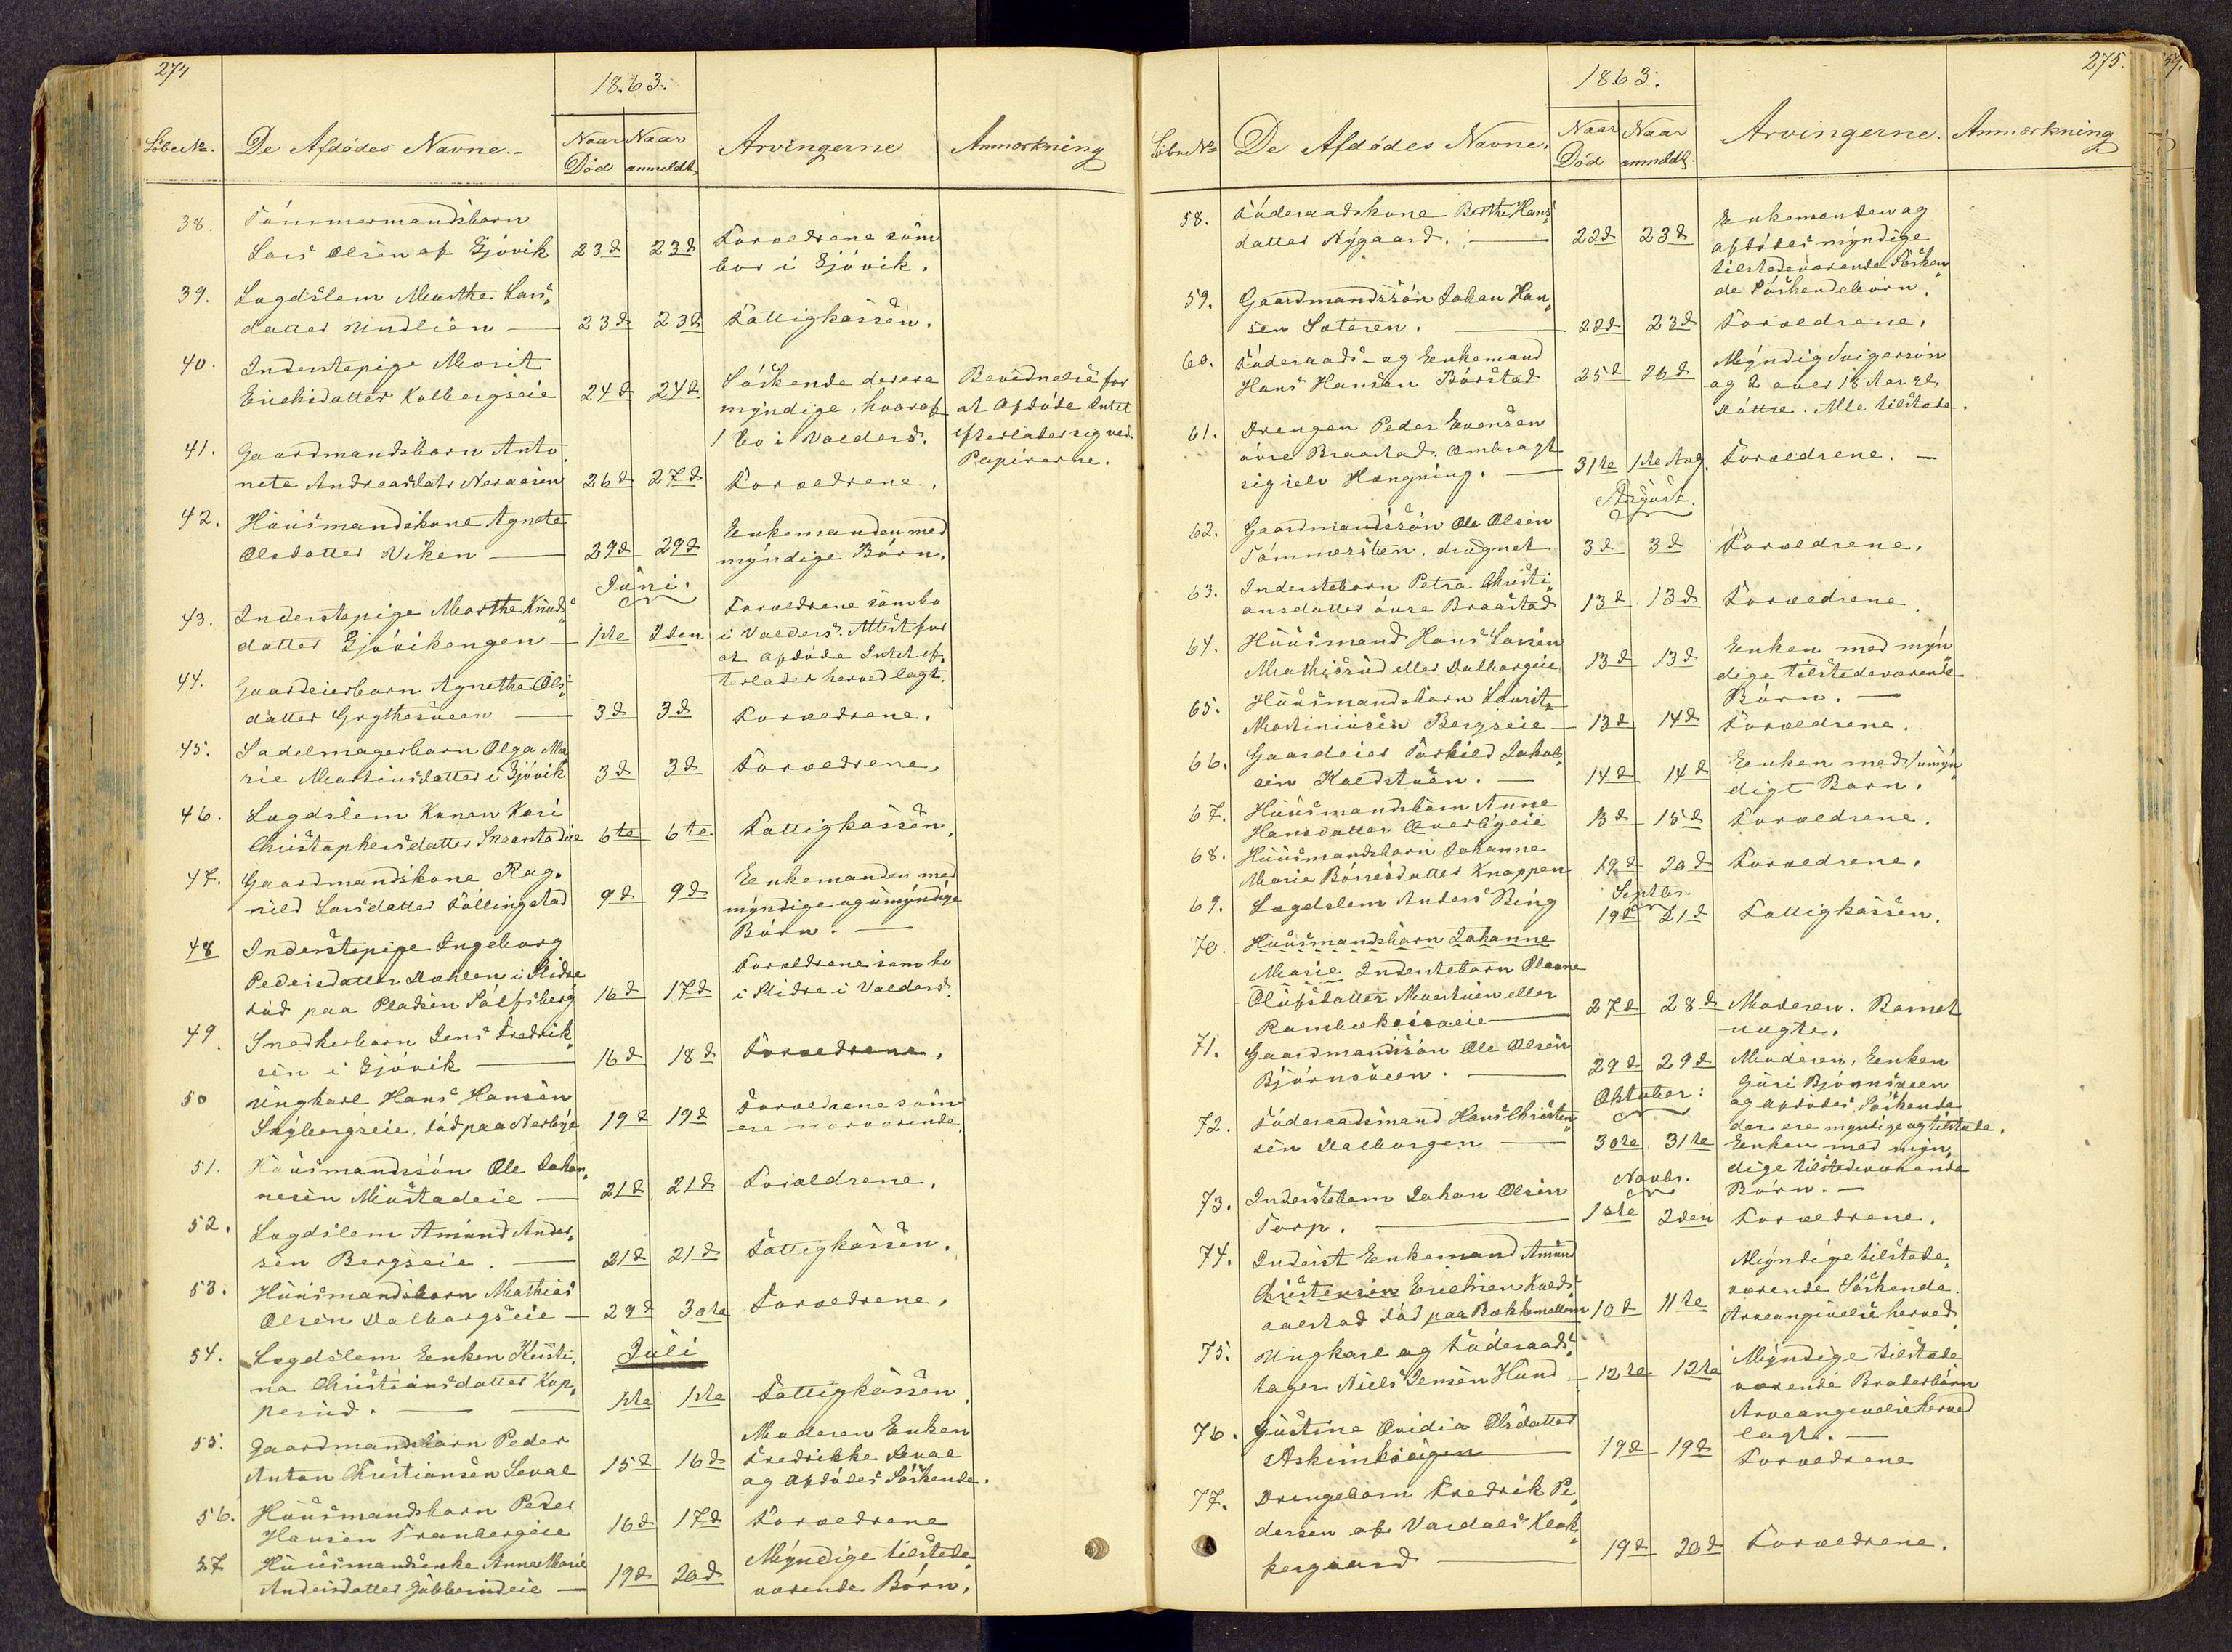 274
1863.
Løbe No. De Afdødes Navne.- Naar Død Naar anmeldt Arvingerne Anmærkning
38. Tömmermandsbarn
Lars Olsen af Gjövik 23d 23d Forældrene som
bor i Gjövik.
39. Lægdslem Marthe Lars„
datter Lindlien — 23d 23d Fattigkassen.
40. Inderstepige Marit
Erichsdatter Kolbergseie 24d 24d Söskende der ere Bevidnelse for
myndige, hvoraf at Afdöde Intet
1 bor i Valders. efterlader sig ved
Papirerne.
41. Gaardmandsbarn Anto„
nete Andreasdatr Neraasen 26d 27d Forældrene.
42. Huusmandskone Agnete
Olsdatter Viken — 29d 29d Enkemanden med
myndige Börn.
Juni.
43. Inderstepige Marthe Knuds„
datter Gjövikengen — 1ste 2den Forældrene som bo
i Valders. Attest for
at Afdöde Intet ef„
terlader herved lagt.
44. Gaardeierbarn Agnethe Ols„
datter Grythesveen — 3d 3d Forældrene.
45. Sadelmagerbarn Olga Ma„
rie Martinsdatter i Gjövik 3d 3d Forældrene.
46. Lægdslem Konen Kari
Christophersdatter Skaarstadeie 6te 6te Fattigkassen.
47. Gaardmandskone Rag„
nild Larsdatter Föllingstad 9d 9d Eenkemanden med
myndige og umyndige
Börn. —
48 Inderstepige Ingeborg
Pedersdatter Dahlen i Slidre
död paa Pladsen Sölfsberg 16d 17d Forældrene som bo
i Slidre i Valders.
49. Snedkerbarn Jens Fredrik„
sen i Gjövik — 16d 18d Forældrene.
50 Ungkarl Hans Hansen
Skybergseie, död paa Nerbye 19d 19d Forældrene som
ere nærværende.
51. Huusmandssön Ole Johan„
nesen Mustadeie — 21d 21d Forældrene.
52. Lægdslem Amund Ander„
sen Bergseie. — 21d 21d Fattigkassen.
53. Huusmandsbarn Mathias
Olsen Dalborgseie — 29d 30te Forældrene.
Juli
54. Lægdslem Eenken Kristi„
na Christiansdatter Kop„
perud. — 1ste 1ste Fattigkassen.
55. Gaardmandsbarn Peder
Anton Christiansen Seval 15d 16d Moderen Enken
Fredrikke Seval
og Afdödes Söskende.
56. Huusmandsbarn Peder
Hansen Tranbergeie 16d 17d Forældrene
57 Huusmandsenke Anne Marie
Andersdatter Gubberudeie — 19d 20d Myndige tilstede„
værende Börn.
275.
1863.
Løbe No De Afdödes Navne. Naar Död Naar anmeldt. Arvingerne. Anmærkning
58. Föderaadskone Berthe Hans„
datter Nygaard. — 22d 23d Enkemanden og
afdödes myndige
tilstedeværende Sösken„
de Söskendebörn.
59. Gaardmandssön Johan Han„
sen Sæteren. — 22d 23d Forældrene.
60. Föderaads- og Eenkemand
Hans Hansen Börstad 25d 26d Myndig Svigersön
og 2 over 18 Aar gl.
Döttre. Alle tilstede.
61. Drengen Peder Evensen
övre Braastad. Ombragt
sig selv Hængning. — 31te 1ste Aug. Forældrene. —
August.
62. Gaardmandssön Ole Olsen
Tömmersteen, drugnet 3d 3d Forældrene.
63. Inderstebarn Petra Christi„
ansdatter övre Braastad 13d 13d Forældrene.
64. Huusmand Hans Larsen
Mathisrud eller Dalborgeie 13d 13d Enken med myn„
dige tilstedeværende
Börn. —
65. Huusmandsbarn Laurits
Martiniusen Bergseie — 13d 14d Forældrene.
66. Gaardeier Torkild Jakob„
sen Koldstuen. — 14d 14d Eenken med 1 umyn„
digt Barn.
67. Huusmandsbarn Anne
Hansdatter Overbyeie 13d 15d Forældrene.
68. Huusmandsbarn Johanne
Marie Börresdatter Knappen 19d 20d Forældrene.
Septbr.
69. Lægdslem Anders Ring 19d 21d Fattigkassen.
70. Huusmandsbarn Johanne
Marie Inderstebarn Oleane
Olufsdatter Mostuen eller
Rambekseie — 27d 28d Moderen. Barnet
uægte.
71. Gaardmandssön Ole Olsen
Björnsveen. — 29d 29d Moderen, Eenken
Guri Björnsveen
og Afdödes Söskende
der ere myndige og tilstede.
Oktober:
72. Föderaadsmand Hans Christen„
sen Dalborgen — 30te 31te Eenken med myn„
dige tilstedeværende
Börn. —
Novbr.
73. Inderstebarn Johan Olsen
Torp. — 1ste 2den Forældrene.
74. Inderst Eenkemand Amund
Christensen Erichsen Kolds„
aalstad död paa Bokkemellem 10d 11te Myndige tilstede„
værende Söskende.
Arveangivelse herved.
75. Ungkarl og Föderaads„
tager Niels Jensen Hund — 12te 12te Myndige tilstede
værende Broderbörn
Arveangivelse herved
lagt. —
76. Gustine Ovidia Olsdatter
Askimhaugen — 19d 19d Forældrene
77. Drengebarn Fredrik Pe„
dersen af Vardals Klok„
kergaard — 19d 20d Forældrene.